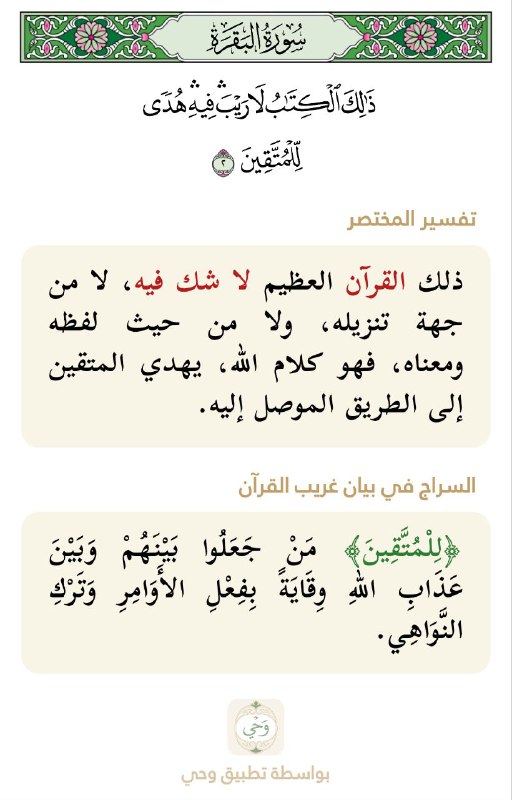 سُورَةُ البَقَرَةِ
ذَٰلِكَ ٱلْكِتَٰبُ لَا رَيْبَ ۛ فِيهِ ۛ هُدًى
لِّلْمُتَّقِينَ ٢
تفسير المختصر
ذلك القرآن العظيم لا شك فيه، لا من
جهة تنزيله، ولا من حيث لفظه
ومعناه، فهو كلام الله، يهدي المتقين
إلى الطريق الموصل إليه.
السراج في بيان غريب القرآن
﴿لِلْمُتَّقِينَ﴾ مَنْ جَعَلُوا بَيْنَهُمْ وَبَيْنَ
عَذَابِ اللهِ وِقَايَةً بِفِعْلِ الأَوَامِرِ وَتَرْكِ
النَّوَاهِي.
وَحْي
بواسطة تطبيق وحي